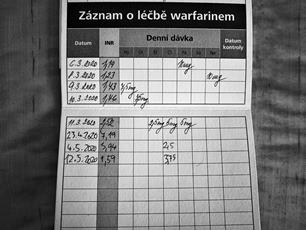 Záznam o léčbě warfarinem
Datum INR Denní dávka Datum kontroly
Po Út St Čt Pá So Ne
6.3.2020 1,19
8.3.2020 1,23
9.3.2020 1,43
10.3.2020 1,46
11.3.2020
23.4.2020 7,19
4.5.2020 5,94 2,5
12.5.2020 1,59 3,75